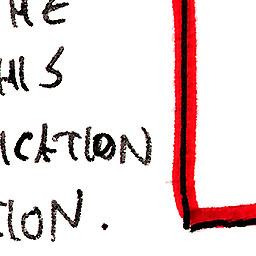 ME
HIS
ICATION
TION.